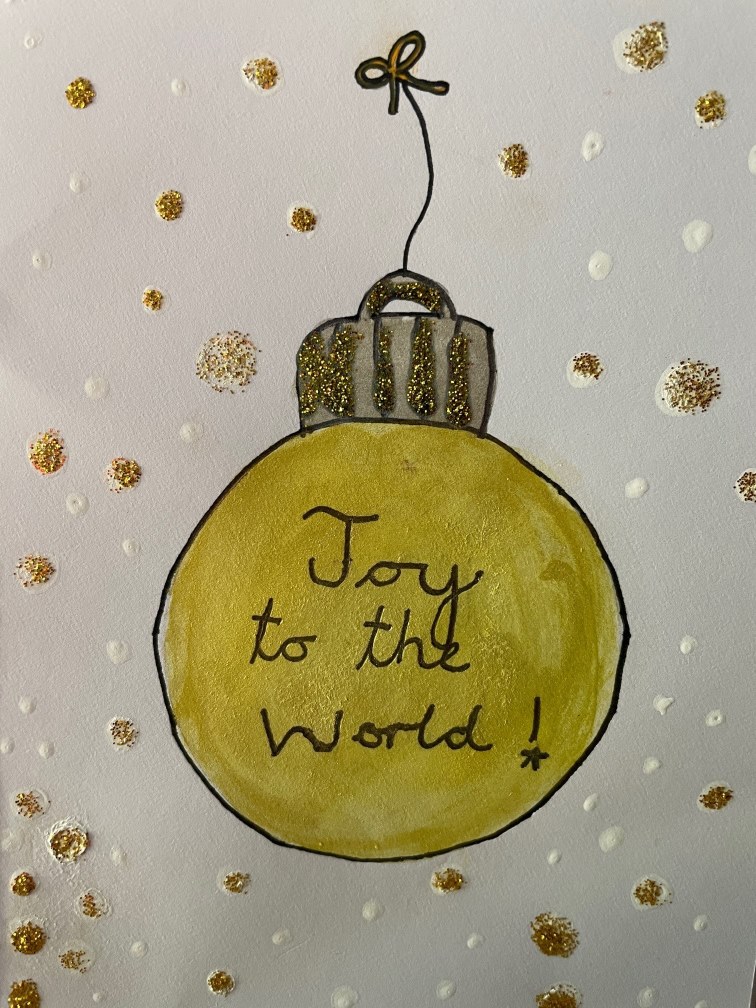 Joy
to the
World!